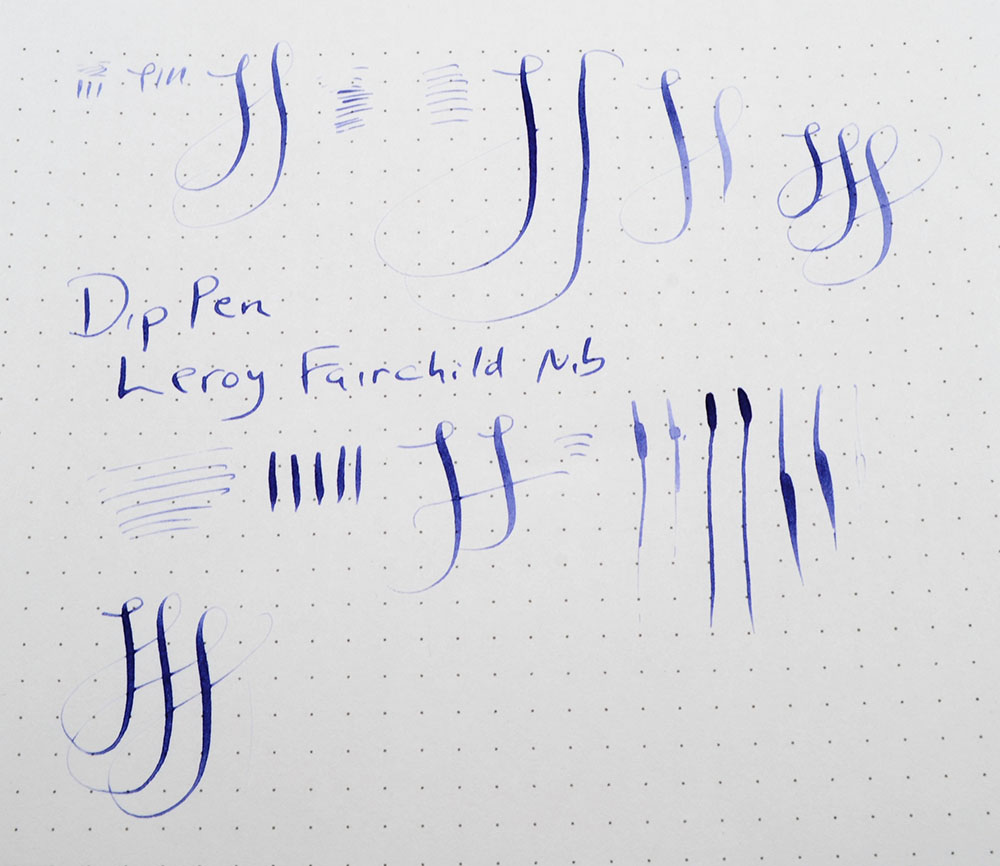 Dip Pen
Leroy Fairchild Nib